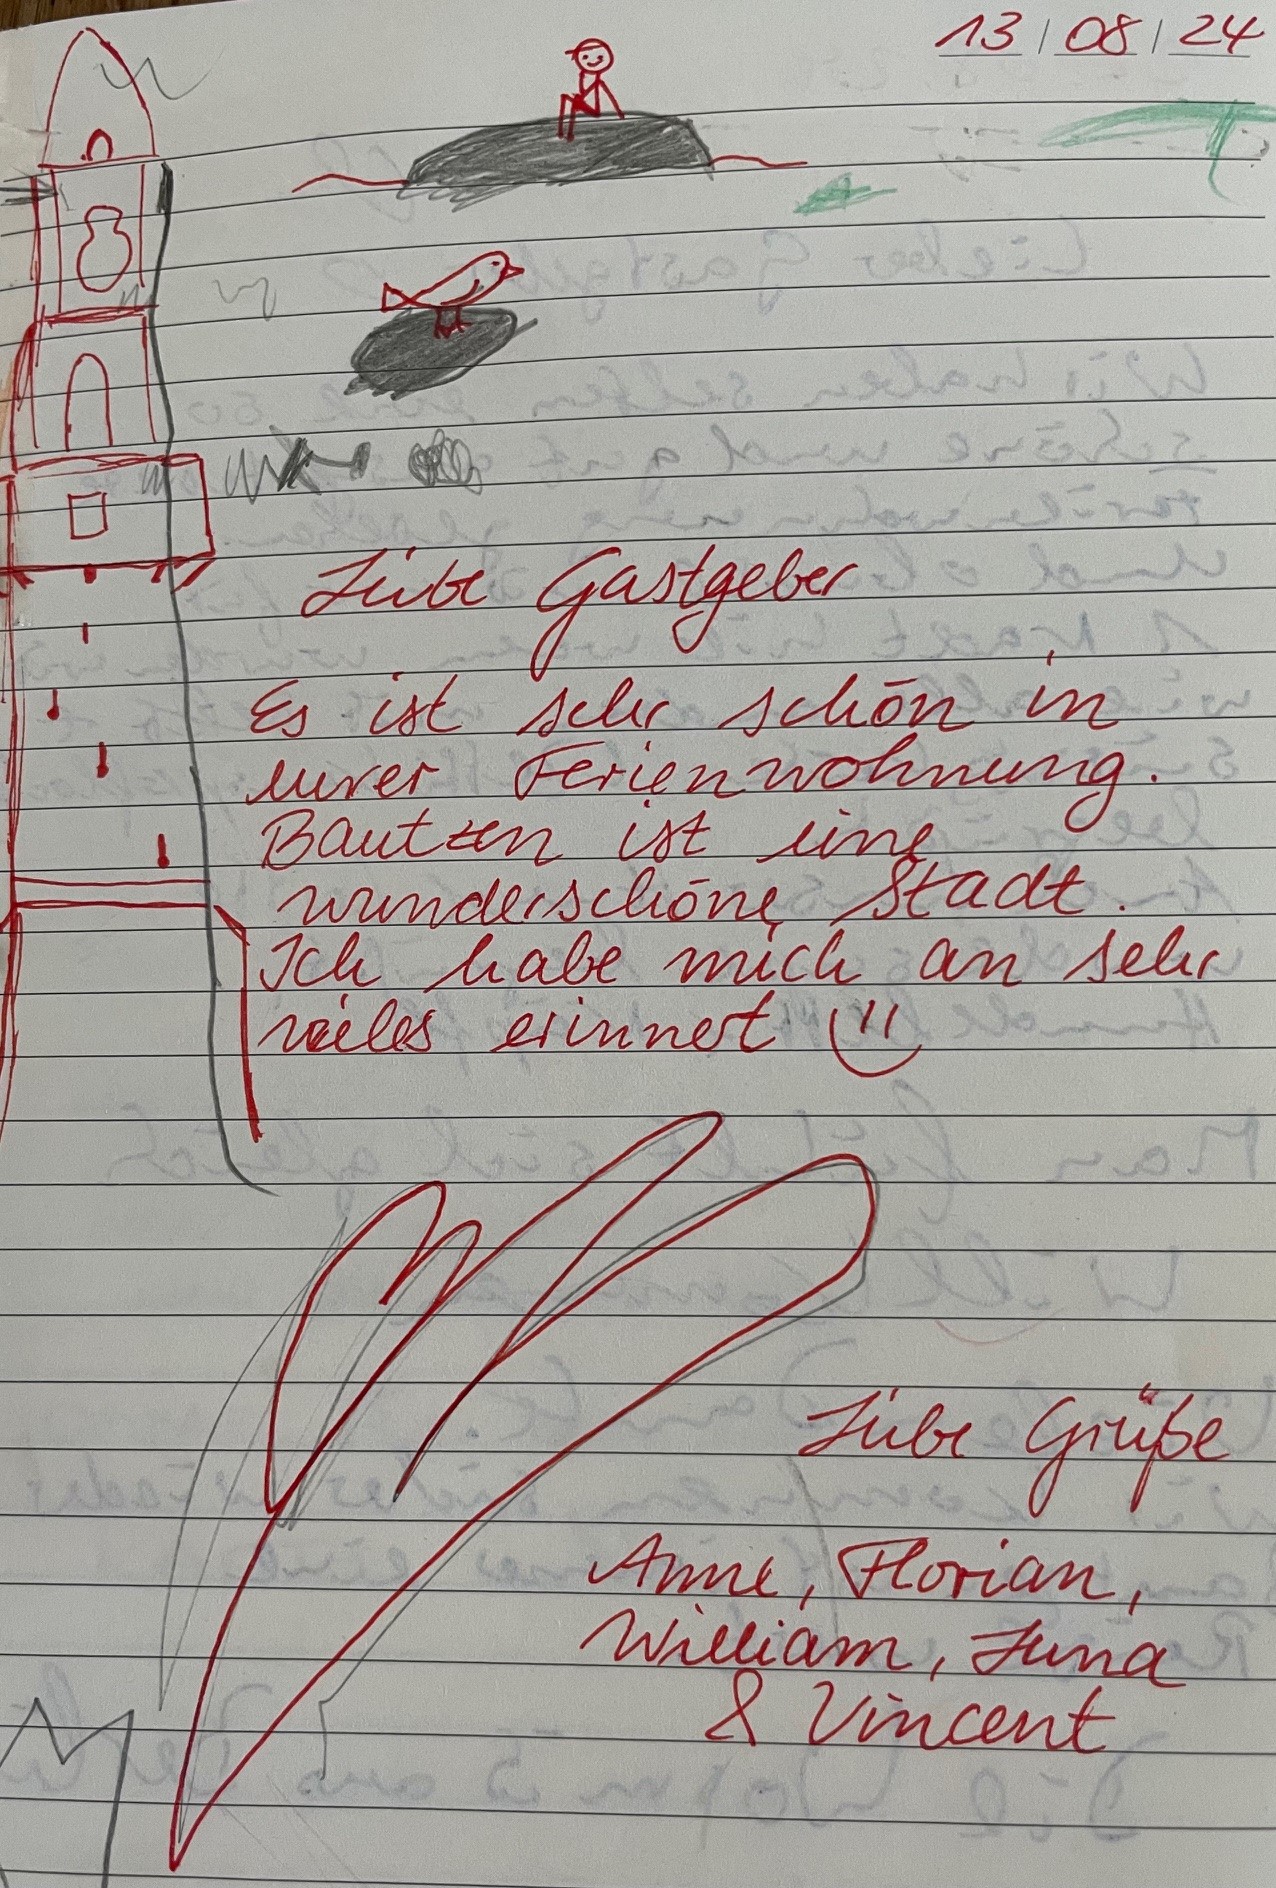 13/08/24
Liebe Gastgeber
Es ist sehr schön in
eurer Ferienwohnung.
Bautzen ist eine
wunderschöne Stadt.
Ich habe mich an sehr
vieles erinnert
Liebe Grüße
Anne, Florian,
William, Luna
& Vincent